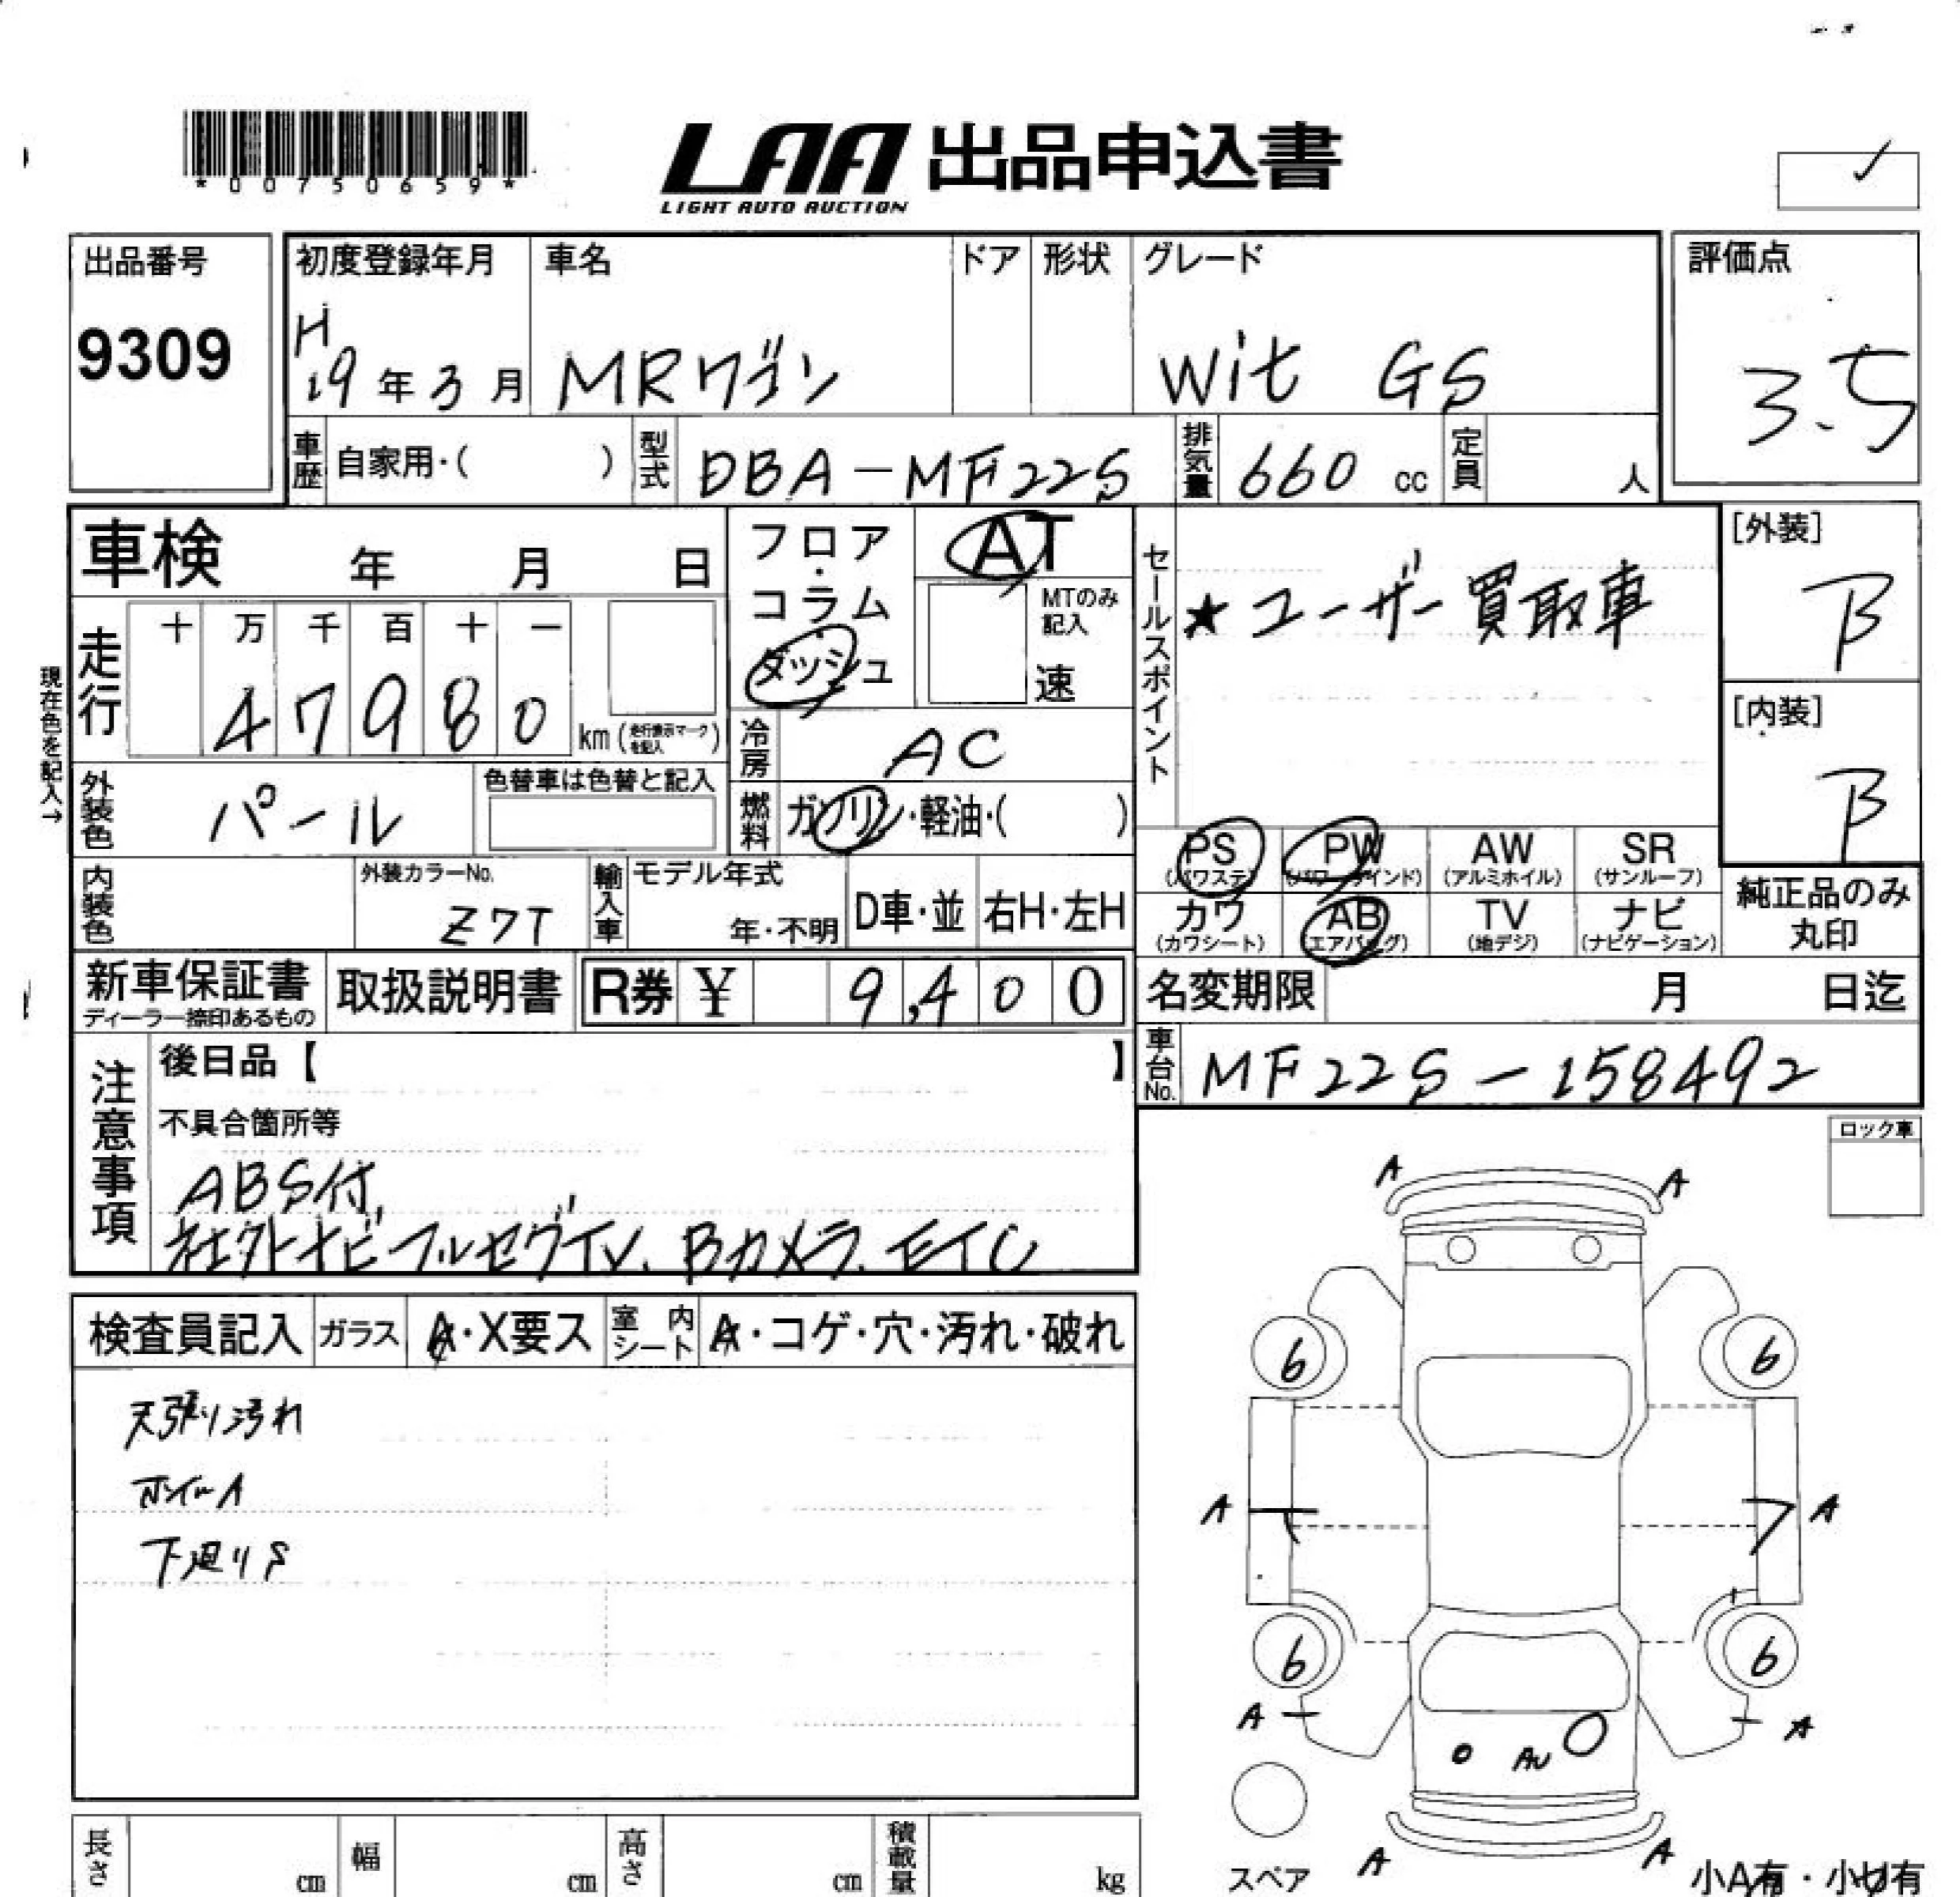 *00750659*
LAA 出品申込書
LIGHT AUTO AUCTION
出品番号
9309
初度登録年月 車名 ドア 形状 グレード
H
19年3月 MRワゴン Wit GS
評価点
3.5
車歴 自家用・( ) 型式 DBA-MF22S 排気量 660 cc 定員 人
車検 年 月 日
フロア・コラム・ダッシュ
AT
MTのみ記入
速
セールスポイント
★ユーザー買取車
[外装]
B
[内装]
B
現在色を記入→
走行 十 万 千 百 十 一
4 7 9 8 0 km (走行表示マークを記入)
冷房 AC
外装色 パール 色替車は色替と記入
燃料 ガソリン・軽油・( )
PS (パワステ) PW (パワーウインド) AW (アルミホイル) SR (サンルーフ)
カワ (カワシート) AB (エアバッグ) TV (地デジ) ナビ (ナビゲーション)
純正品のみ
丸印
内装色 外装カラーNo. Z7T 輸入車 モデル年式 年・不明 D車・並 右H・左H
新車保証書 ディーラー捺印あるもの 取扱説明書 R券 ¥ 9,400
名変期限 月 日迄
車台No. MF22S-158492
注意事項
後日品【 】
不具合箇所等
ABS付
社外ナビフルセグTV、Bカメラ、ETC
ロック車
検査員記入 ガラス A・X要ス 室内シート A・コゲ・穴・汚れ・破れ
天張り汚れ
ホイールA
下廻りS
A A
6 6
A A
6 6
A A
AU
A A
スペア
小A有・小U有
長さ cm 幅 cm 高さ cm 積載量 kg